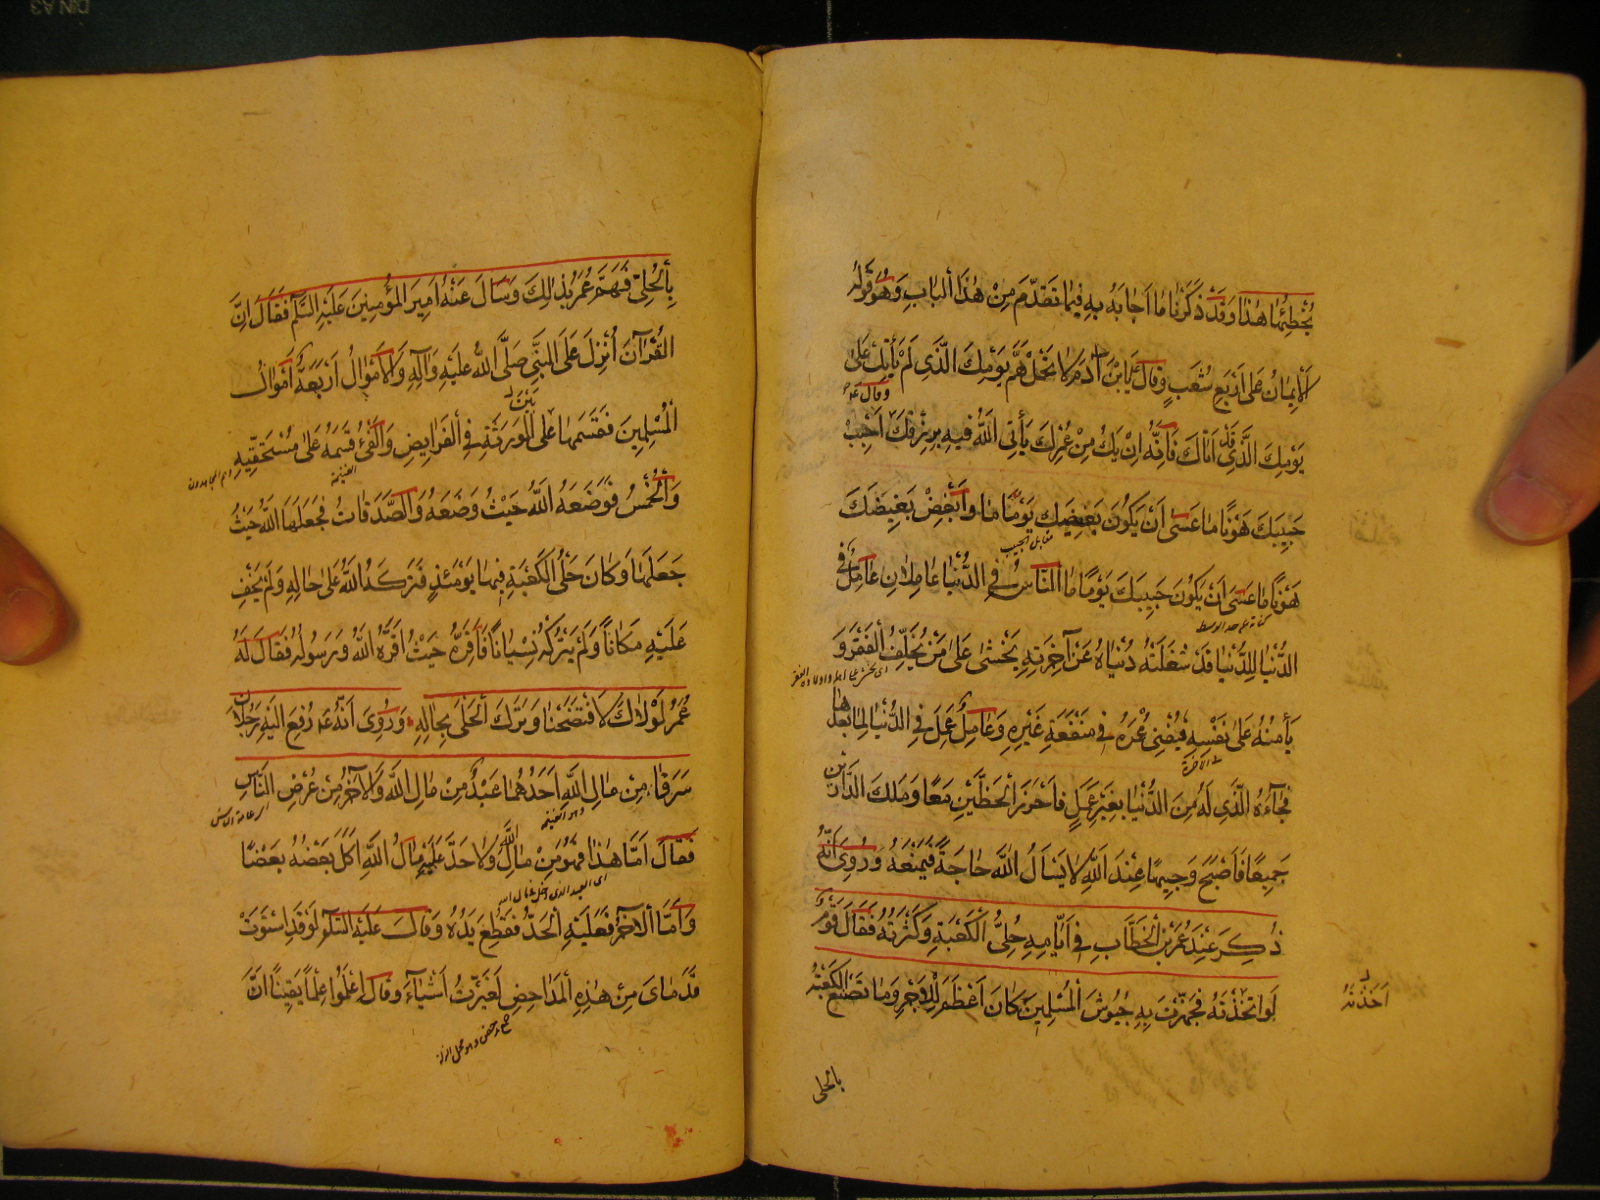 يُخْطِئُهَا هٰذَا وَقَدْ ذَكَرْنَا مَا اَجَابَهُ بِهِ فِيمَا تَقَدَّمَ مِنْ هٰذَا الْبَابِ وَهُوَ قَوْلُهُ
اَلْاِيمَانُ عَلَى اَرْبَعِ شُعَبٍ وَقَالَ يَابْنَ اٰدَمَ لَا تَحْمِلْ هَمَّ يَوْمِكَ الَّذِى لَمْ يَأْتِكَ عَلَى
يَوْمِكَ الَّذِى قَدْ اَتَاكَ فَاِنَّهُ اِنْ يَكُ مِنْ عُمْرِكَ يَأْتِى اللّٰهُ فِيهِ بِرِزْقِكَ اَحْبِبْ
وقال ع
حَبِيبَكَ هَوْنًا مَا عَسَى اَنْ يَكُونَ بَغِيضَكَ يَوْمًا مَا وَاَبْغِضْ بَغِيضَكَ
مقابل الحبيب
هَوْنًا مَا عَسَى اَنْ يَكُونَ حَبِيبَكَ يَوْمًا مَا اَلنَّاسُ فِى الدُّنْيَا عَامِلَانِ عَامِلٌ فِى
الدُّنْيَا لِلدُّنْيَا قَدْ شَغَلَتْهُ دُنْيَاهُ عَنْ آخِرَتِهِ يَخْشَى عَلَى مَنْ يُخَلِّفُ الْفَقْرَ وَ
يَأْمَنُهُ عَلَى نَفْسِهِ فَيُفْنِى عُمْرَهُ فِى مَنْفَعَةِ غَيْرِهِ وَعَامِلٌ عَمِلَ فِى الدُّنْيَا لِمَا بَعْدَهَا
فَجَآءَهُ الَّذِى لَهُ مِنَ الدُّنْيَا بِغَيْرِ عَمَلٍ فَاَحْرَزَ الْحَظَّيْنِ مَعًا وَمَلَكَ الدَّارَيْنِ
جَمِيعًا فَاَصْبَحَ وَجِيهًا عِنْدَ اللّٰهِ لَا يَسْأَلُ اللّٰهَ حَاجَةً فَيَمْنَعَهُ وَرُوِىَ اَنَّهُ
ذُكِرَ عِنْدَ عُمَرَ بْنِ الْخَطَّابِ فِى اَيَّامِهِ حِلْىُ الْكَعْبَةِ وَكَثْرَتُهُ فَقَالَ قَوْمٌ
لَوِ اتَّخَذْتَهُ فَجَهَّزْتَ بِهِ جُيُوشَ الْمُسْلِمِينَ كَانَ اَعْظَمَ لِلْاَجْرِ وَمَا تَصْنَعُ الْكَعْبَةُ
اَخَذْتَهُ
بالحلى
بِالْحِلْىِ فَهَمَّ عُمَرُ بِذٰلِكَ وَسَاَلَ عَنْهُ اَمِيرَ الْمُؤْمِنِينَ عَلَيْهِ السَّلَمُ فَقَالَ اِنَّ
الْقُرْآنَ اُنْزِلَ عَلَى النَّبِىِّ صَلَّى اللّٰهُ عَلَيْهِ وَآلِهِ وَالْاَمْوَالُ اَرْبَعَةٌ اَمْوَالُ
الْمُسْلِمِينَ فَقَسَمَهَا عَلَى الْوَرَثَةِ فِى الْفَرَايِضِ وَالْفَىْءُ قَسَمَهُ عَلَى مُسْتَحِقِّيهِ
بَيْنَ
وهم المجاهدون
الغنيمة
وَالْخُمْسُ فَوَضَعَهُ اللّٰهُ حَيْثُ وَضَعَهُ وَالصَّدَقَاتُ فَجَعَلَهَا اللّٰهُ حَيْثُ
جَعَلَهَا وَكَانَ حَلْىُ الْكَعْبَةِ فِيهَا يَوْمَئِذٍ فَتَرَكَهُ اللّٰهُ عَلَى حَالِهِ وَلَمْ يَخْفَ
عَلَيْهِ مَكَانًا وَلَمْ يَتْرُكْهُ نِسْيَانًا فَاَقِرَّهُ حَيْثُ اَقَرَّهُ اللّٰهُ وَرَسُولُهُ فَقَالَ لَهُ
عُمَرُ لَوْلَاكَ لَافْتَضَحْنَا وَتَرَكَ الْحَلْىَ بِحَالِهِ وَرُوِىَ اَنَّهُ ع رُفِعَ اِلَيْهِ رَجُلَانِ
سَرَقَا مِنْ مَالِ اللّٰهِ اَحَدُهُمَا عَبْدٌ مِنْ مَالِ اللّٰهِ وَالْآخَرُ مِنْ عُرْضِ النَّاسِ
وهو الغنيمة
فَقَالَ اَمَّا هٰذَا فَهُوَ مِنْ مَالِ اللّٰهِ وَلَا حَدَّ عَلَيْهِ مَالُ اللّٰهِ اَكَلَ بَعْضُهُ بَعْضًا
وَاَمَّا الْآخَرُ فَعَلَيْهِ الْحَدُّ فَقَطَعَ يَدَهُ وَقَالَ عَلَيْهِ السَّلَمُ لَوْ قَدِ اسْتَوَتْ
قَدَمَاىَ مِنْ هٰذِهِ الْمَدَاحِضِ لَغَيَّرْتُ اَشْيَآءَ وَقَالَ اِعْلَمُوا عِلْمًا يَقِينًا اَنَّ